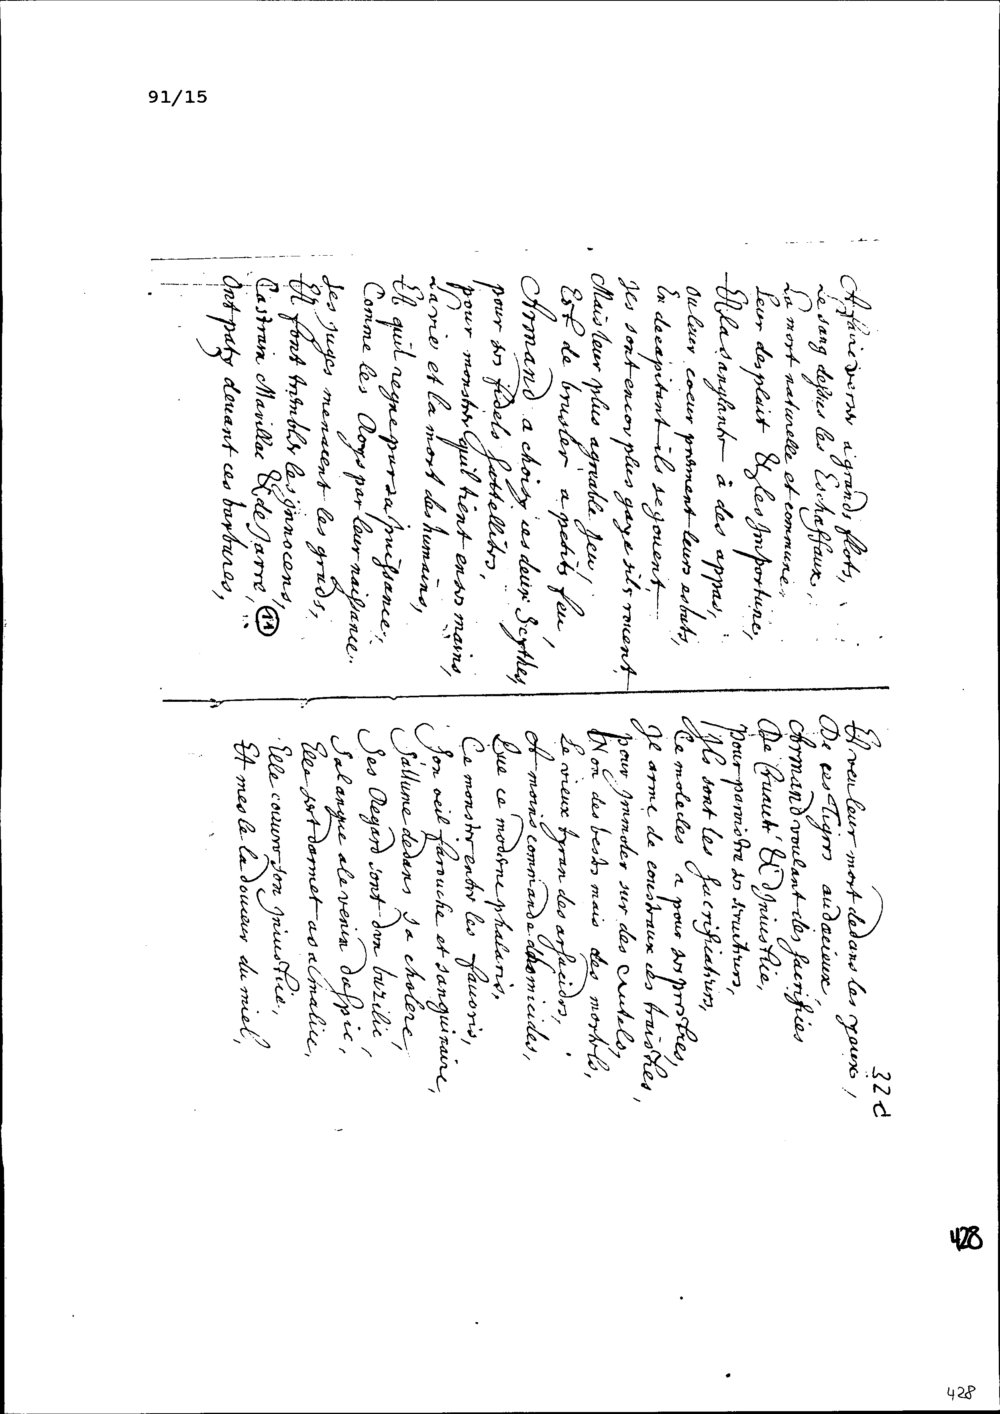 91/15
A faire verser a grands flots,
Le sang dessus les Eschaffaux,
La mort naturelle et commune
Leur desplait & les Importune,
Et la sanglante a des appas,
ou leur coeur prennent leurs esbats,
En decapitant ils se jouent
Ils sont encor plus gays sils rouent
Mais leur plus agreable Jeu,
Est de brusler a petits feu,
Armand a choisy ces deux Scythes,
pour ses fidels satellites,
pour monstrer quil tient en ses mains
La vie et la mort des humains,
Et quil regne par sa puissance,
Comme les Roys par leur naissance.
Ses Juges menacent les grands,
Et font trembler les Jnnocens,
Castrain Marillac & de Jarre, 11
Ont paty devant ces barbares,
32 d
Et veu leur mort dedans les yeux,
De ces Tigres audacieux,
Armand voulant des sacrifices
De Cruauté & dJniustice,
pour paroistre
Ils sont les sacrificateurs,
Ce moloc les a pour ses prestres,
Il arme de cousteaux ces traistres,
pour Jmmoler sur des Autels,
Non des bestes mais des mortels,
Le vieux tyran des
A moins commandé dhomicides,
Que ce moderne phalaris,
Ce monstre entre les favoris,
Son oeil farouche et sanguinaire,
Sallume dedans sa cholere,
Ses Regard sont dun bazilic,
Sa langue a le venin daspic,
Elle sert darmet a sa malice,
Elle couvre son Jniustice,
Et mesle la douceur du miel,
428
428